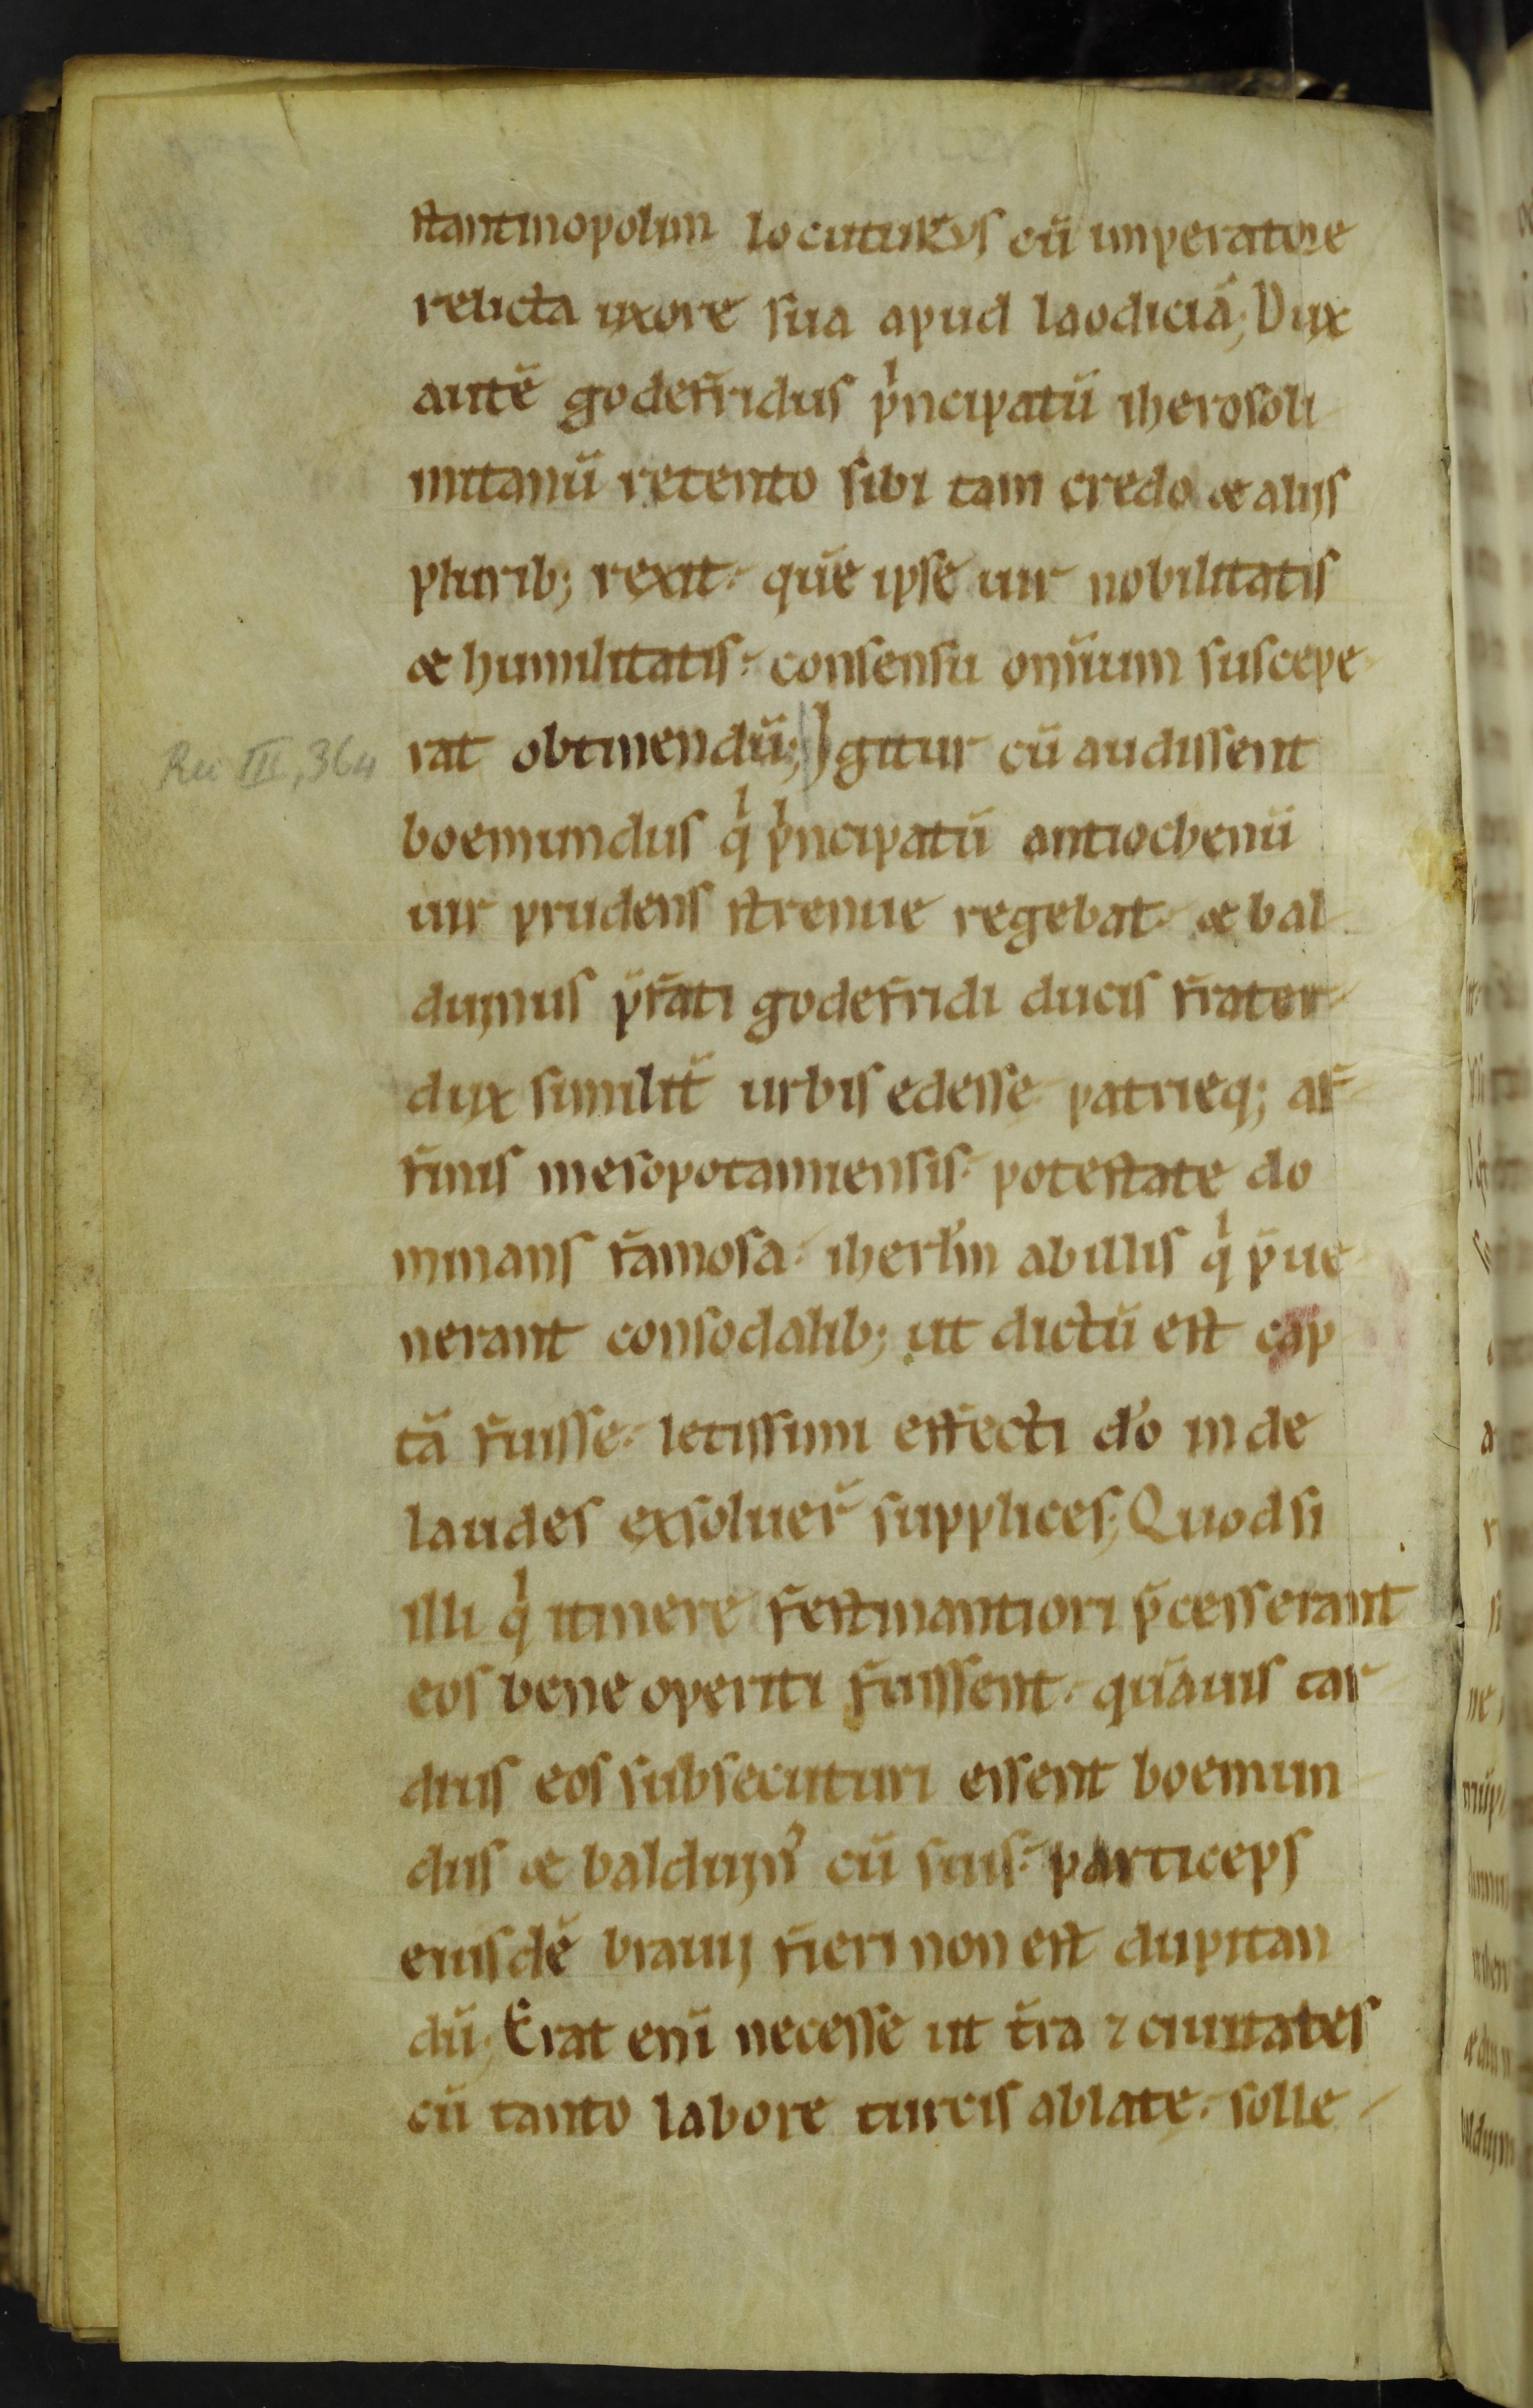 stantinopolim locuturus cū imperatore
relicta uxore sua apud laodiciā; Dux
autē godefridus pͥncipatū iherosoli
mitanū retento sibi tam credo & alijs
plurib; rexit. quē ipse uir nobilitatis
& humilitatis. consensu omīum suscepe
Ru III, 364
rat obtinendū; Igitur cū audissent
boemundus qͥ pͥncipatū antiochenū
uir prudens strenue regebat. & bal
duinus p̄fati godefridi ducis frater
dux similit̄ urbis edesse patrieq; af
finis mesopotamiensis. potestate do
minans famosa. iherl̄m ab illis qͥ p̄ue
nerant consodalib; ut dictū est cap
tā fuisse. letissimi effecti dō inde
laudes exsoluer̄ supplices; Quod si
illi qͥ itinere festinantiori p̄cesserant
eos bene operiti fuissent. quāuis tar
dius eos subsecuturi essent boemun
dus & balduinꝰ cū suis. particeps
eiusdē brauij fieri non est dupitan
dū; Erat enī necesse ut t̄ra ⁊ ciuitates
cū tanto labore turcis ablate. solle